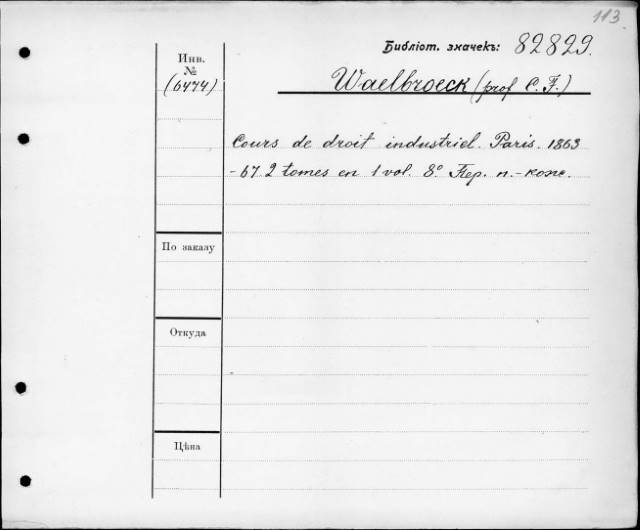 113
Библіот. значекъ: 82829.
Инв.
№
(6474)
Waelbroeck (prof C. F.)
Cours de droit industriel. Paris. 1863
-67. 2 tomes en 1 vol. 8º. Пер. п.-кож.
По заказу
Откуда
Цѣна